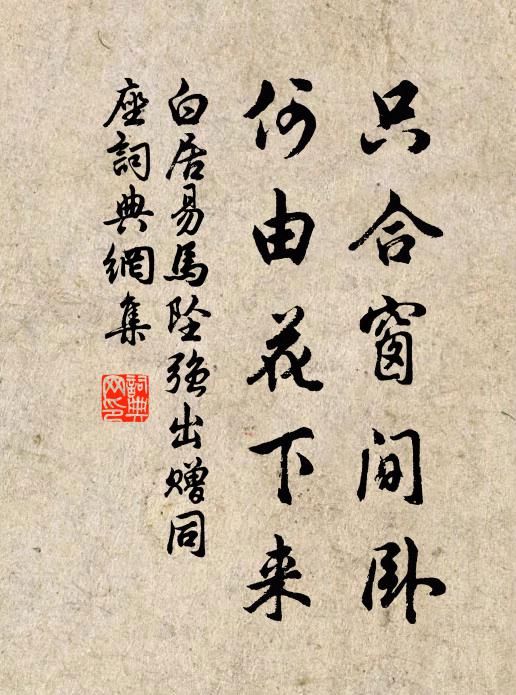 只合窗间卧
何由花下来
白居易馬墜強出贈同
座詞典網集
詞典网印